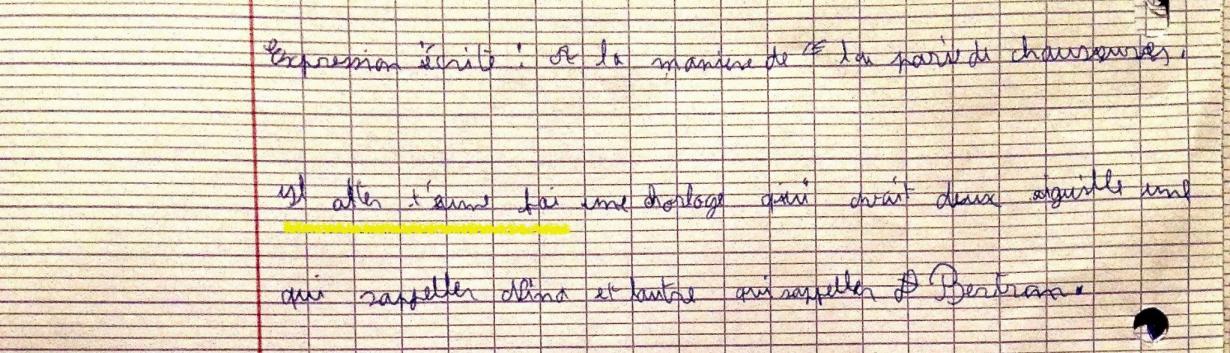 Expression écrite : A la manière de la pari de chaussures.
ysl atter t'eume fai une horloge qui avait deux aiguille une
qui sappeller Nina et lautre qui sappeller Bertran.